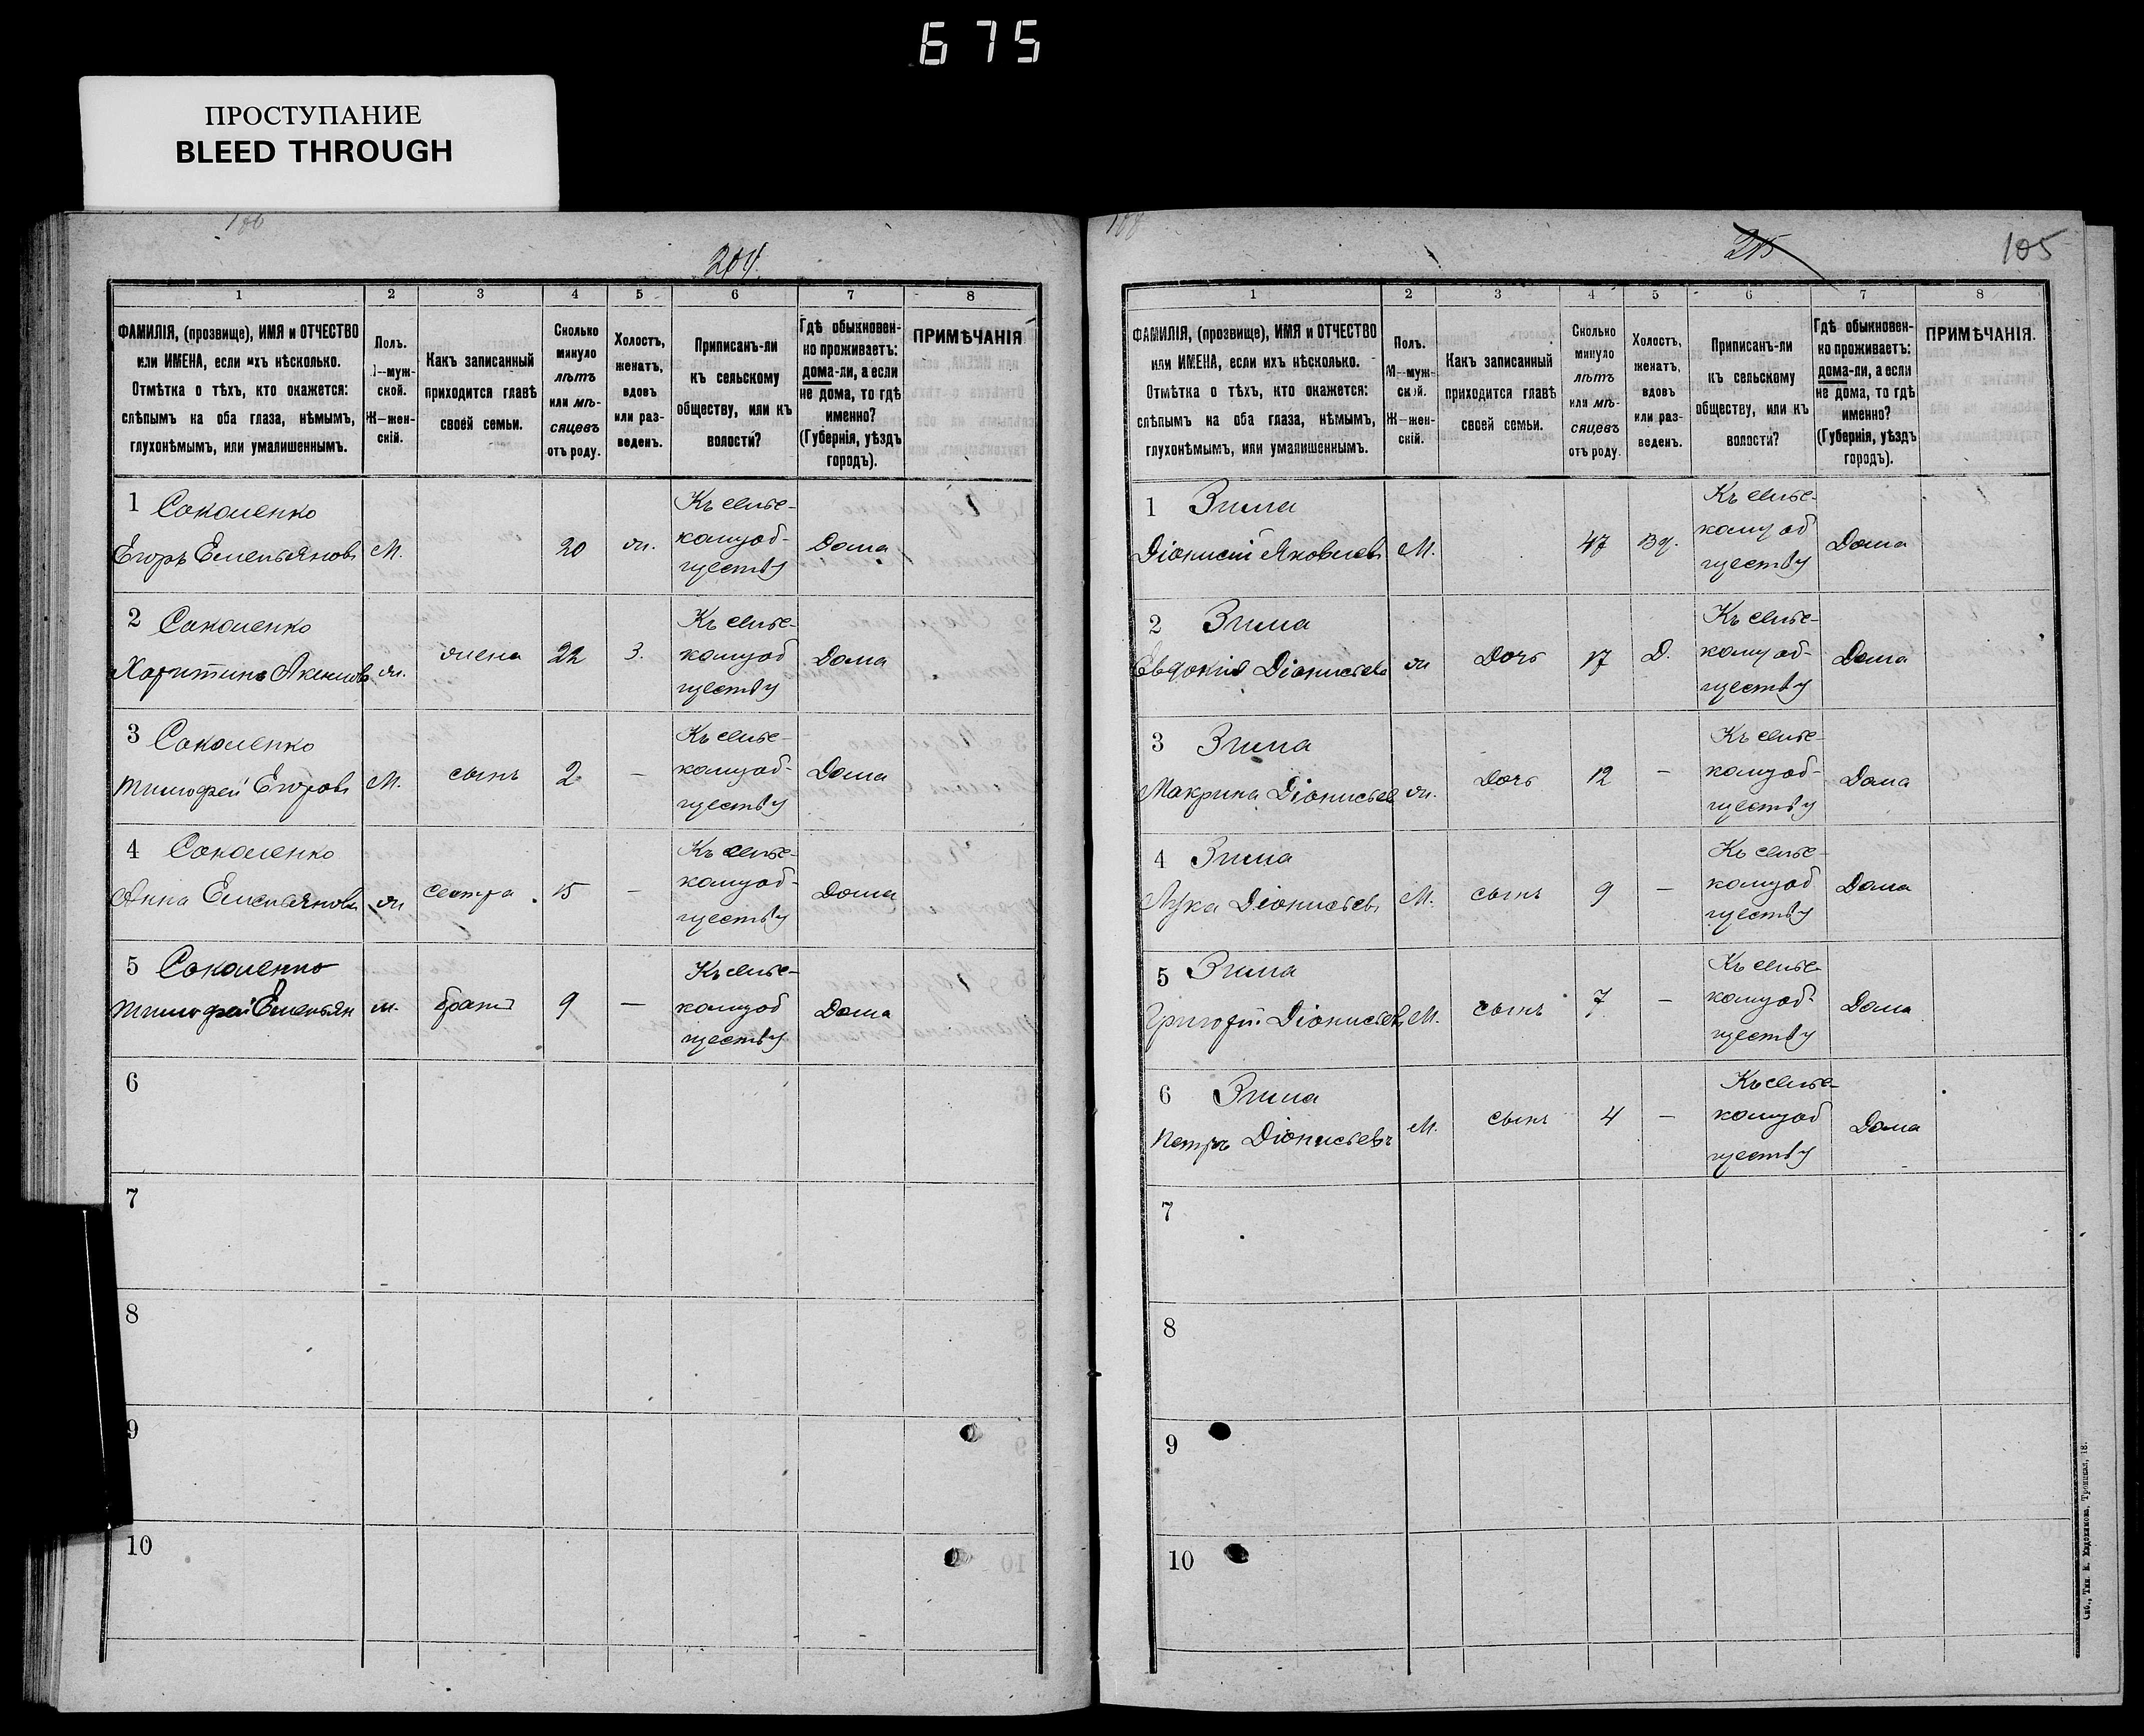 675
ПРОСТУПАНИЕ
BLEED THROUGH
204.
1 2 3 4 5 6 7 8
ФАМИЛІЯ, (прозвище), ИМЯ и ОТЧЕСТВО
или ИМЕНА, если ихъ нѣсколько.
Отмѣтка о тѣхъ, кто окажется:
слѣпымъ на оба глаза, нѣмымъ,
глухонѣмымъ, или умалишеннымъ.
Полъ.
М—муж-
ской.
Ж—жен-
скій.
Какъ записанный
приходится главѣ
своей семьи.
Сколько
минуло
лѣтъ
или мѣ-
сяцевъ
отъ роду.
Холостъ,
женатъ,
вдовъ
или раз-
веденъ.
Приписанъ-ли
къ сельскому
обществу, или къ
волости?
Гдѣ обыкновен-
но проживаетъ:
дома-ли, а если
не дома, то гдѣ
именно?
(Губернія, уѣздъ
городъ).
ПРИМѢЧАНІЯ
1 Соколенко
Егоръ Емельяновъ М. 20 ж.
Къ сельс-
кому об-
ществу
Дома
2 Соколенко
Харитина Акимова ж. жена 22 З.
Къ сельс-
кому об
ществу
Дома
3 Соколенко
Тимофей Егоровъ М. сынъ 2 —
Къ сельс-
кому об-
ществу
Дома
4 Соколенко
Анна Емельянова ж сестра 15 —
Къ сельс-
кому об-
ществу
Дома
5 Соколенко
Тимофей Емельян м. братъ 9 —
Къ сельс-
кому об
ществу
Дома
6
7
8
9
10
215
105
1 2 3 4 5 6 7 8
ФАМИЛІЯ, (прозвище), ИМЯ и ОТЧЕСТВО
или ИМЕНА, если ихъ нѣсколько.
Отмѣтка о тѣхъ, кто окажется:
слѣпымъ на оба глаза, нѣмымъ,
глухонѣмымъ, или умалишеннымъ.
Полъ.
М—муж-
ской.
Ж—жен-
скій.
Какъ записанный
приходится главѣ
своей семьи.
Сколько
минуло
лѣтъ
или мѣ-
сяцевъ
отъ роду.
Холостъ,
женатъ,
вдовъ
или раз-
веденъ.
Приписанъ-ли
къ сельскому
обществу, или къ
волости?
Гдѣ обыкновен-
но проживаетъ:
дома-ли, а если
не дома, то гдѣ
именно?
(Губернія, уѣздъ
городъ).
ПРИМѢЧАНІЯ.
1 Зима
Діонисій Яковлевъ М. 47 Вд.
Къ сельс-
кому об
ществу
Дома
2 Зима
Евдокия Діонисьева ж Дочь 17 Д.
Къ сельс-
кому об-
ществу
Дома
3 Зима
Макрина Діонисьев ж. Дочь 12 —
Къ сельс-
кому об-
ществу
Дома
4 Зима
Лука Діонисьевъ М. сынъ 9 —
Къ сельс-
кому об
ществу
Дома
5 Зима
Григорій Діонисьевъ М. сынъ 7 —
Къ сельс-
кому об-
ществу
Дома
6 Зима
Петръ Діонисьевъ М. сынъ 4 —
Къ сельс-
кому об
ществу
Дома
7
8
9
10